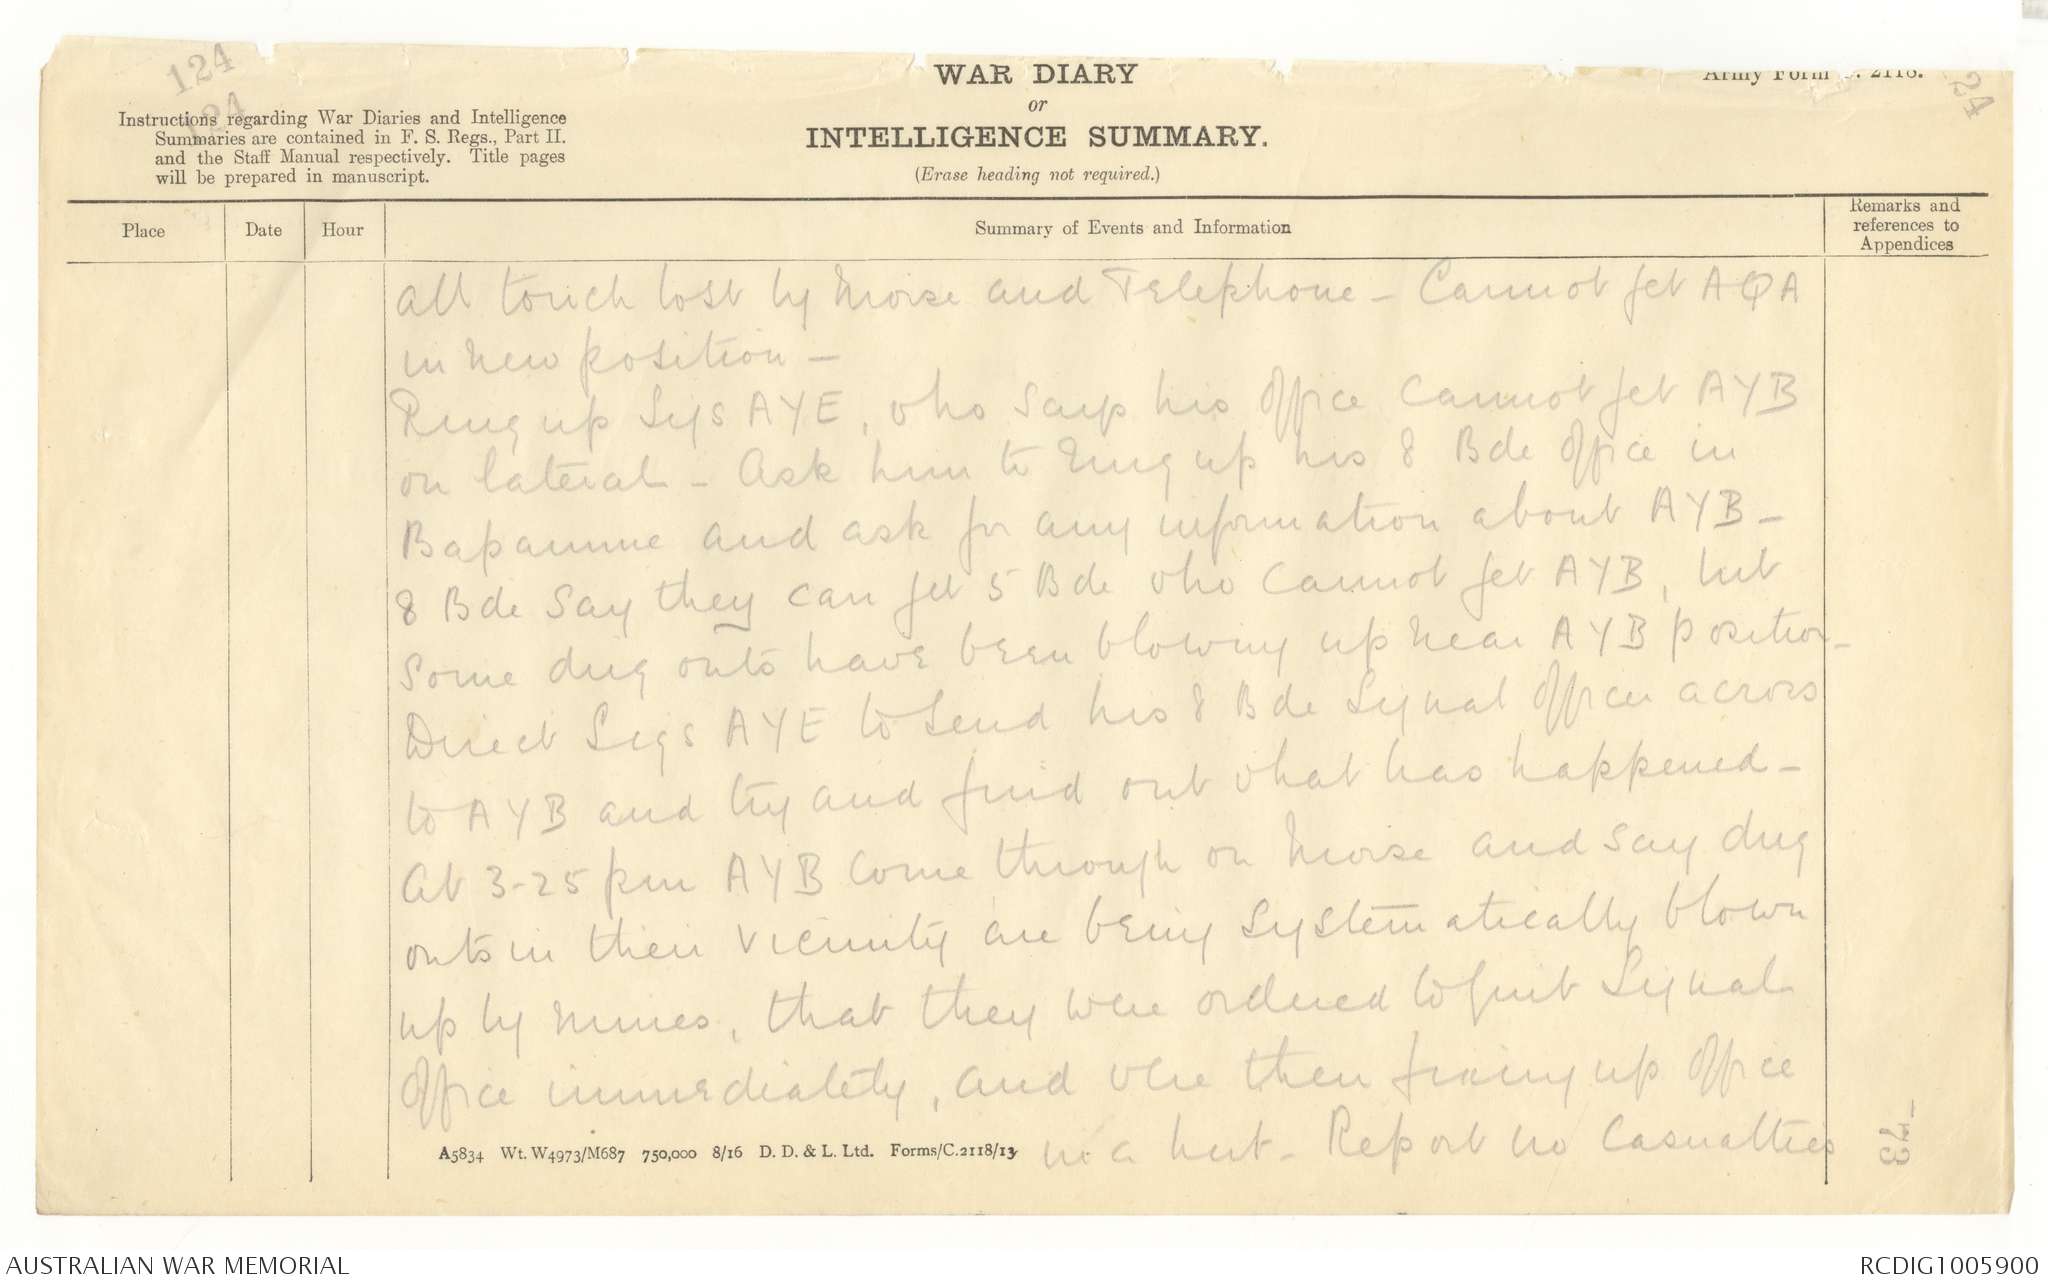 124
124
24
WAR DIARY
or
INTELLIGENCE SUMMARY.
(Erase heading not required.)
Army Form C. 2118.
Instructions regarding War Diaries and Intelligence
Summaries are contained in F. S. Regs., Part II.
and the Staff Manual respectively. Title pages
will be prepared in manuscript.
Place
Date
Hour
Summary of Events and Information
Remarks and
references to
Appendices
all touch lost by Morse and Telephone - Cannot get AQA
in new position -
Ring up Sigs AYE, who says his office cannot get AYB
on lateral - Ask him to ring up his 8 Bde office in
Bapaume and ask for any information about AYB -
8 Bde say they can get 5 Bde who cannot get AYB, but
some dug outs have been blowing up near AYB position -
Direct Sigs AYE to send his 8 Bde Signal Officer across
to AYB and try and find out what has happened -
At 3-25 pm AYB come through on Morse and say dug
outs in their vicinity are being systematically blown
up by mines, that they were ordered to quit Signal
Office immediately, and were then fixing up office
in a hut - Report no casualties
A5834 Wt. W4973/M687 750,000 8/16 D. D. & L. Ltd. Forms/C.2118/13
AUSTRALIAN WAR MEMORIAL
RCDIG1005900